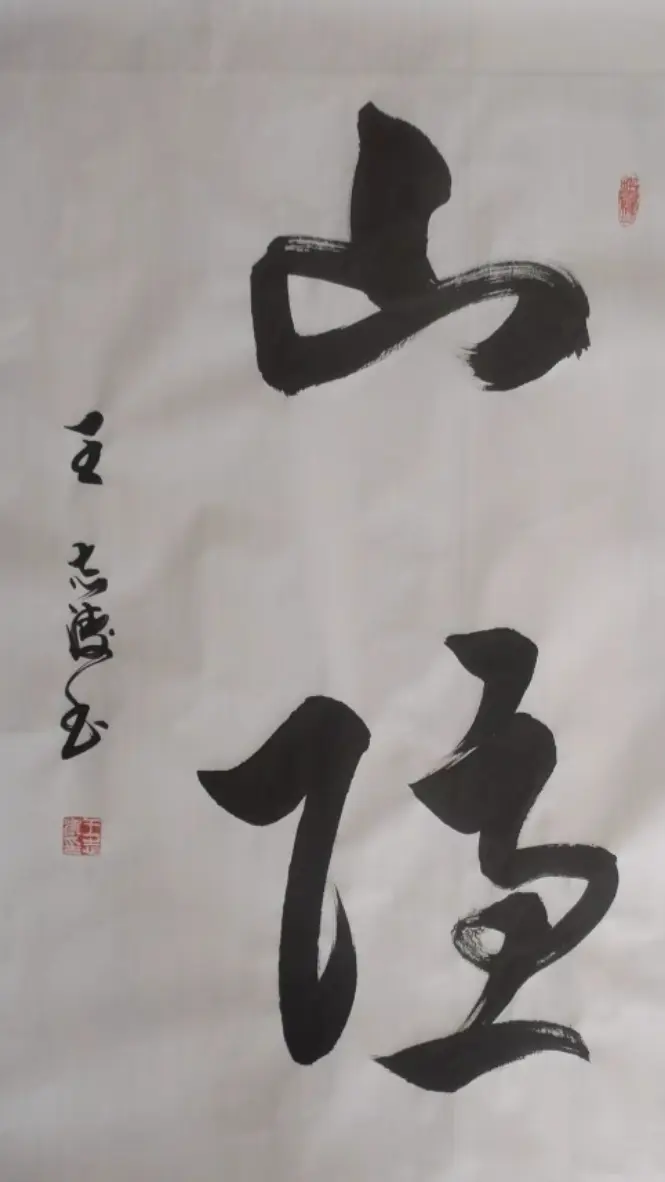 山隐
王志书